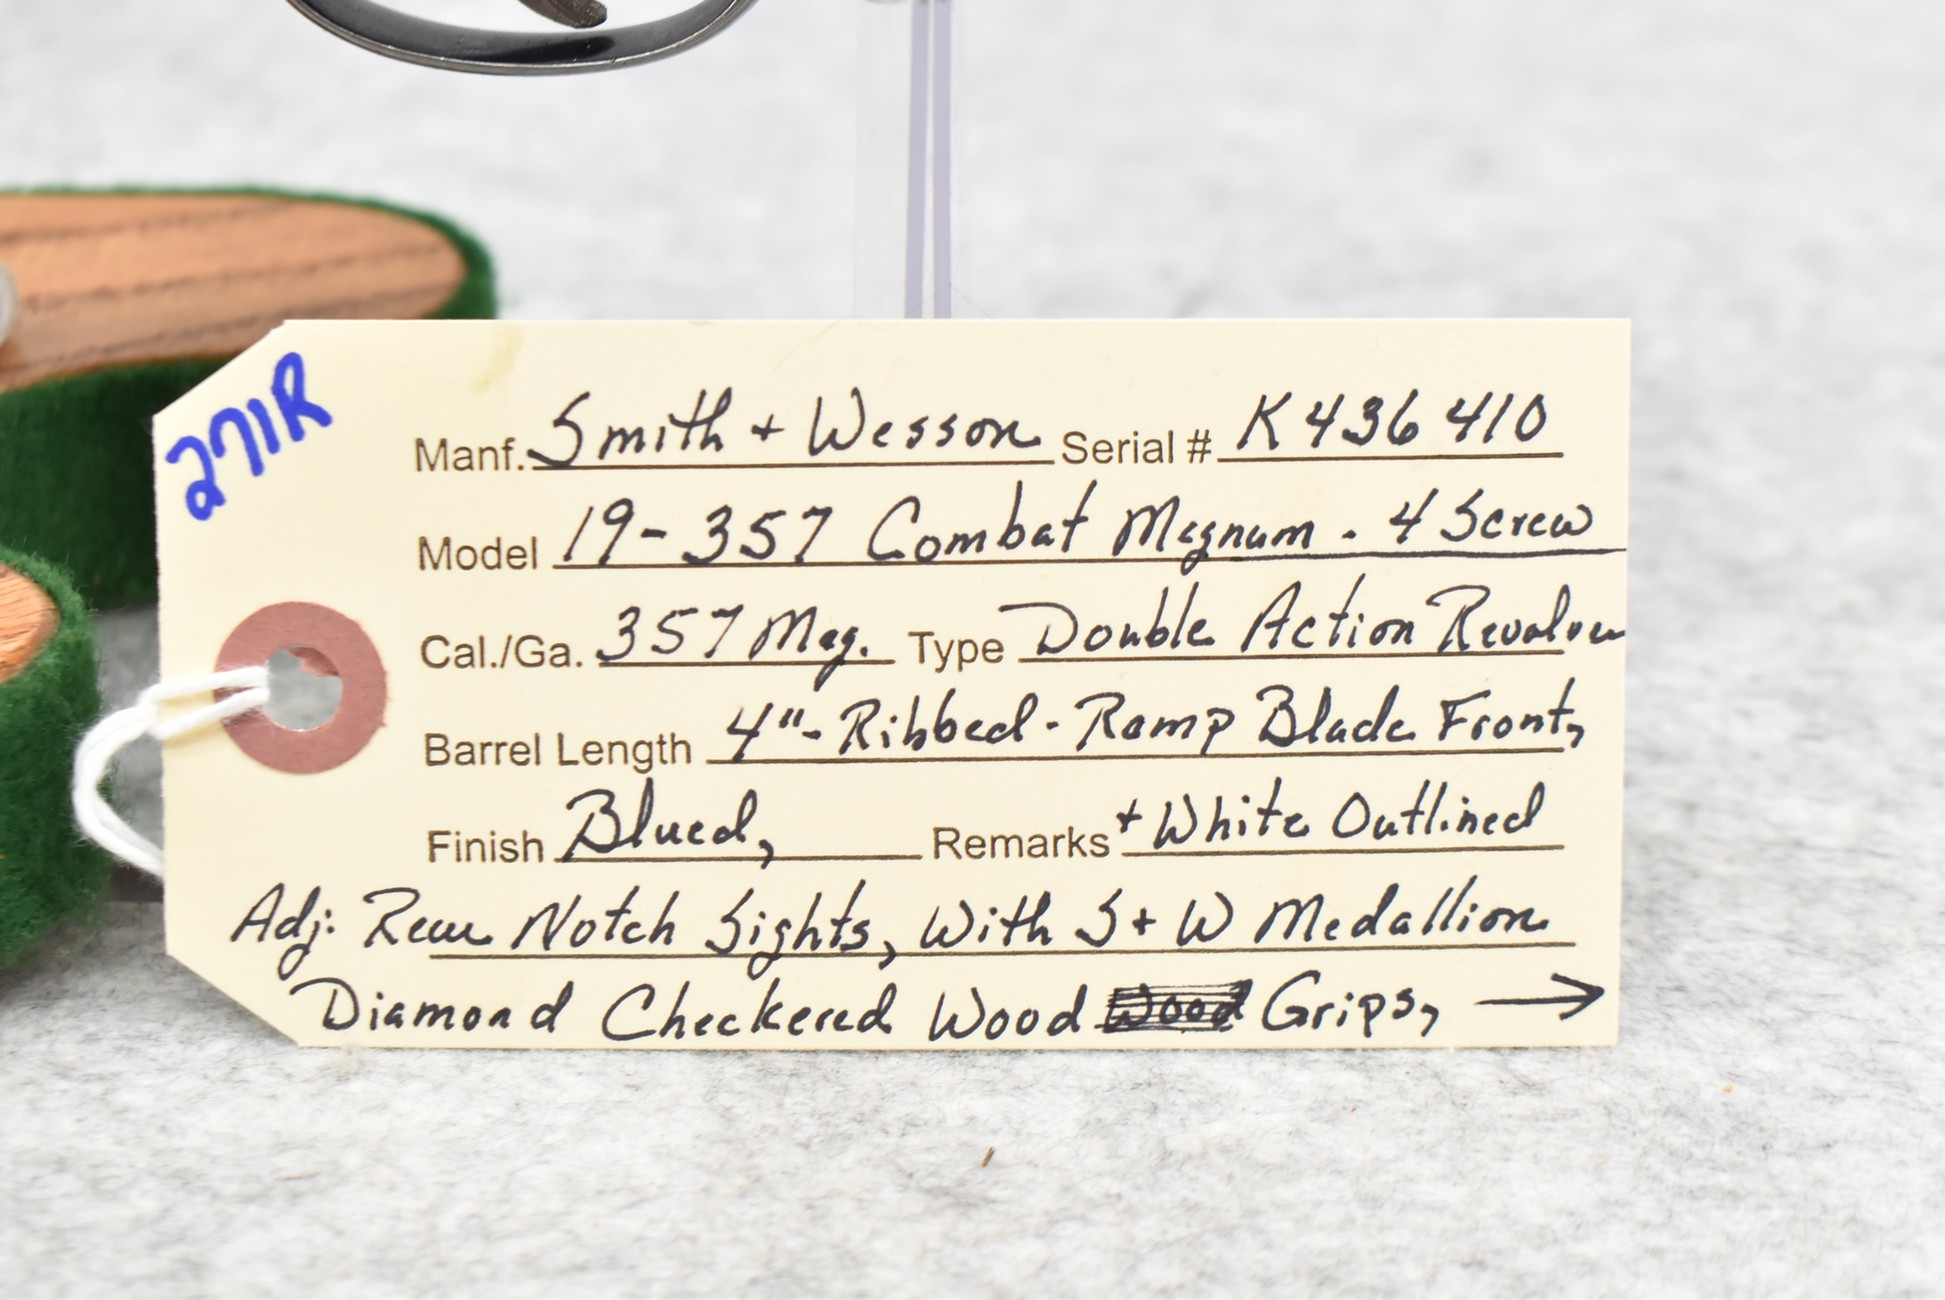 271R
Manf. Smith + Wesson Serial # K436410
Model 19-357 Combat Magnum - 4 Screw
Cal./Ga. 357 Mag. Type Double Action Revolver
Barrel Length 4"- Ribbed - Ramp Blade Front,
Finish Blued, Remarks + White Outlined
Adj. Rear Notch Sights, With S+W Medallion
Diamond Checkered Wood Grips, →